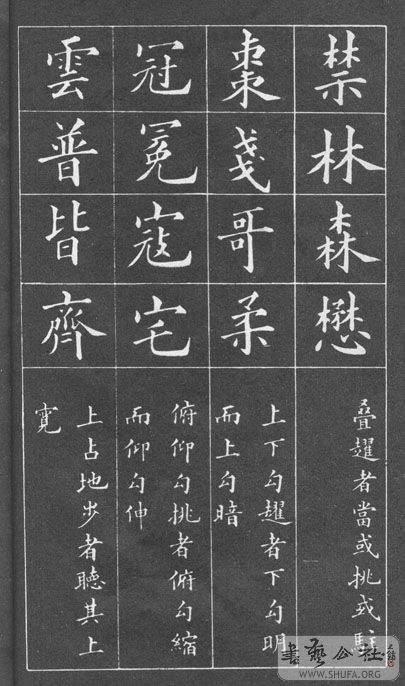 禁林森懋
叠趯者當或挑或駐
棗戔哥柔
上下勾趯者下勾明
而上勾暗
冠冕寇宅
俯仰勾挑者俯勾縮
而仰勾伸
雲普皆齊
上占地步者聽其上
寬
書藝公社
WWW.SHUFA.ORG